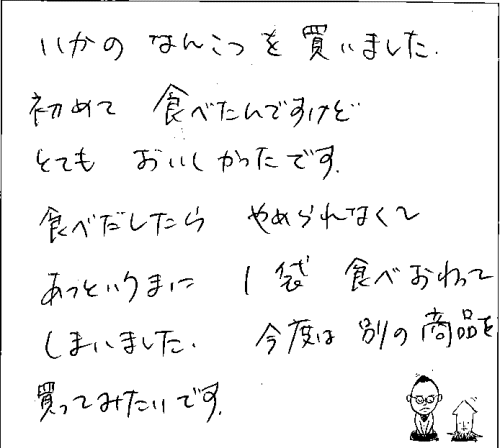 いかの なんこつ を 買いました.
初めて 食べたんですけど
とても おいしかったです.
食べだしたら やめられなくて
あっというまに 1袋 食べおわって
しまいました. 今度は 別の商品を
買ってみたいです.